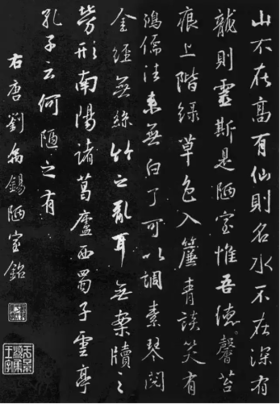 山不在高有仙則名水不在深有
龍則靈斯是陋室惟吾德馨苔
痕上階綠草色入簾青談笑有
鴻儒往來無白丁可以調素琴閱
金經無絲竹之亂耳無案牘之
勞形南陽諸葛廬西蜀子雲亭
孔子云何陋之有
右唐劉禹錫陋室銘